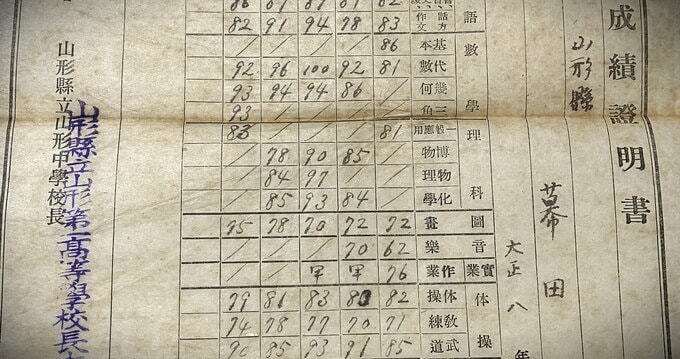 成績證明書
山形縣
幕田
大正八年
語
話方作文 83 78 94 91 82
數學
基本 86 / / / /
代數 81 92 100 96 92
幾何 / 86 94 94 93
三角 / / / / 93
理科
一般應用 81 / / / 83
博物 / 85 90 78 /
物理 / / 97 84 /
化學 / 84 93 85 /
圖畫 72 72 70 78
音樂 62 70 / / /
實業 作業 76 甲 甲 / /
体操
体操 82 80 83 81 79
教練 71 70 77 78 74
武道 85 91 93 85 90
山形縣立山形中學校長
山形縣立山形第一高等學校長